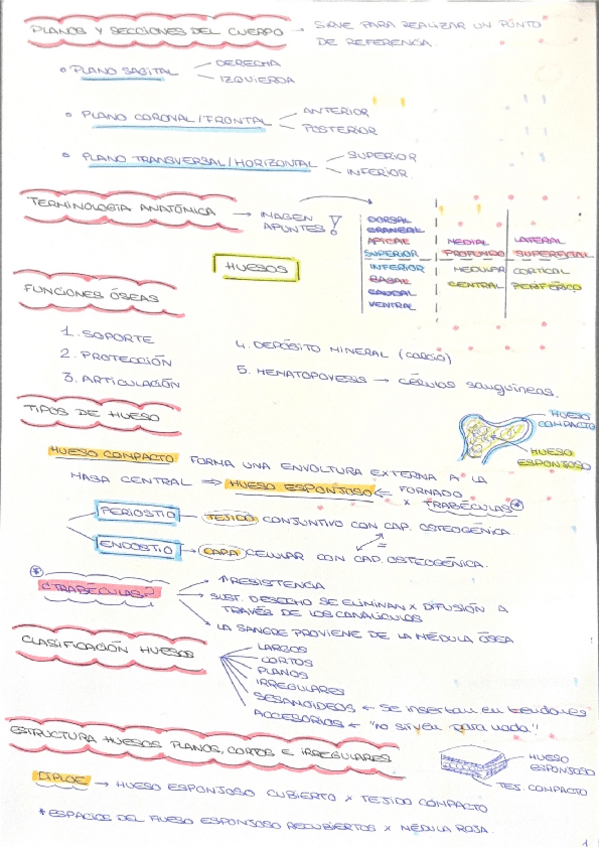 PLANOS Y SECCIONES DEL CUERPO → SIRVE PARA REALIZAR UN PUNTO
DE REFERENCIA.
• PLANO SAGITAL DERECHA
IZQUIERDA
• PLANO CORONAL/FRONTAL ANTERIOR
POSTERIOR
• PLANO TRANSVERSAL/HORIZONTAL SUPERIOR
INFERIOR.
TERMINOLOGIA ANATÓMICA → IMAGEN
APUNTES!
DORSAL
CRANEAL
APICAL MEDIAL LATERAL
SUPERIOR PROFUNDO SUPERFICIAL
INFERIOR MEDULAR CORTICAL
BASAL CENTRAL PERIFÉRICO
CAUDAL
VENTRAL
HUESOS
FUNCIONES ÓSEAS
1. SOPORTE
2. PROTECCIÓN
3. ARTICULACIÓN
4. DEPÓSITO MINERAL (calcio)
5. HEMATOPOYESIS → células sanguíneas.
TIPOS DE HUESO
HUESO
COMPACTO
HUESO
ESPONJOSO
HUESO COMPACTO FORMA UNA ENVOLTURA EXTERNA A LA
MASA CENTRAL ⇒ HUESO ESPONJOSO ← FORMADO
x TRABÉCULAS *
PERIOSTIO → TEJIDO CONJUNTIVO CON CAP. OSTEOGÉNICA
=
ENDOSTIO → CAPA CELULAR CON CAP. OSTEOGÉNICA.
* ¿TRABÉCULAS?
↑ RESISTENCIA
SUST. DESECHO SE ELIMINAN x DIFUSIÓN A
TRAVÉS DE LOS CANALÍCULOS
LA SANGRE PROVIENE DE LA MÉDULA ÓSEA
CLASIFICACIÓN HUESOS
LARGOS
CORTOS
PLANOS
IRREGULARES
SESAMOIDEOS ← Se insertan en tendones
ACCESORIOS ← "no sirven para nada"
ESTRUCTURA HUESOS PLANOS, CORTOS E IRREGULARES
HUESO
ESPONJOSO
TEJ. COMPACTO
DIPLOE → HUESO ESPONJOSO CUBIERTO x TEJIDO COMPACTO
* ESPACIOS DEL HUESO ESPONJOSO RECUBIERTOS x MÉDULA ROJA.
1